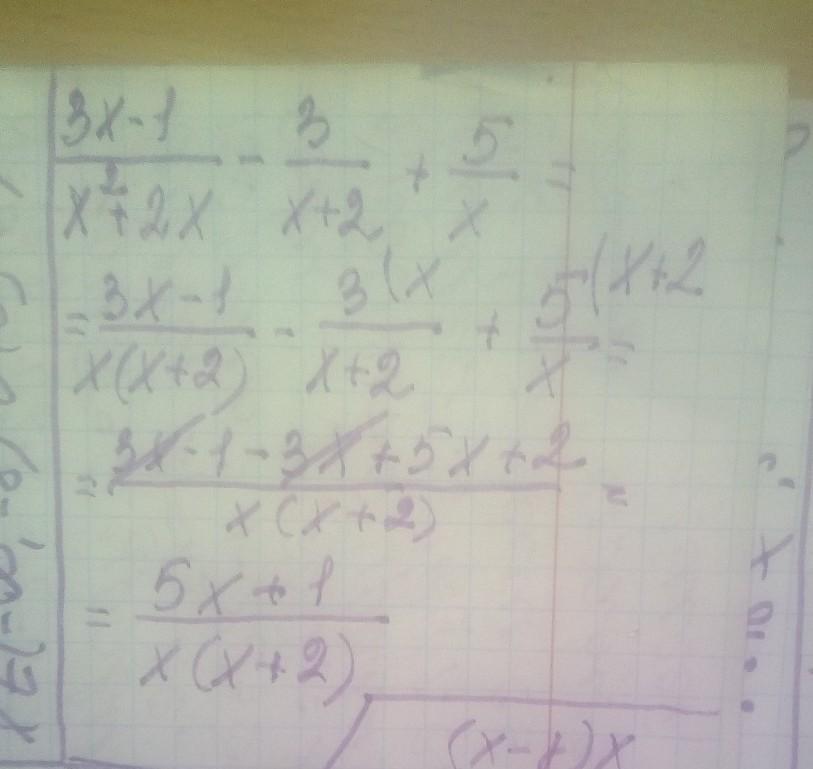 (3x-1)/(x²+2x) - 3/(x+2) + 5/x =
= (3x-1)/(x(x+2)) - 3(x/(x+2) + 5(x+2/x =
= (3x-1-3x+5x+2)/(x(x+2)) =
= (5x+1)/(x(x+2))